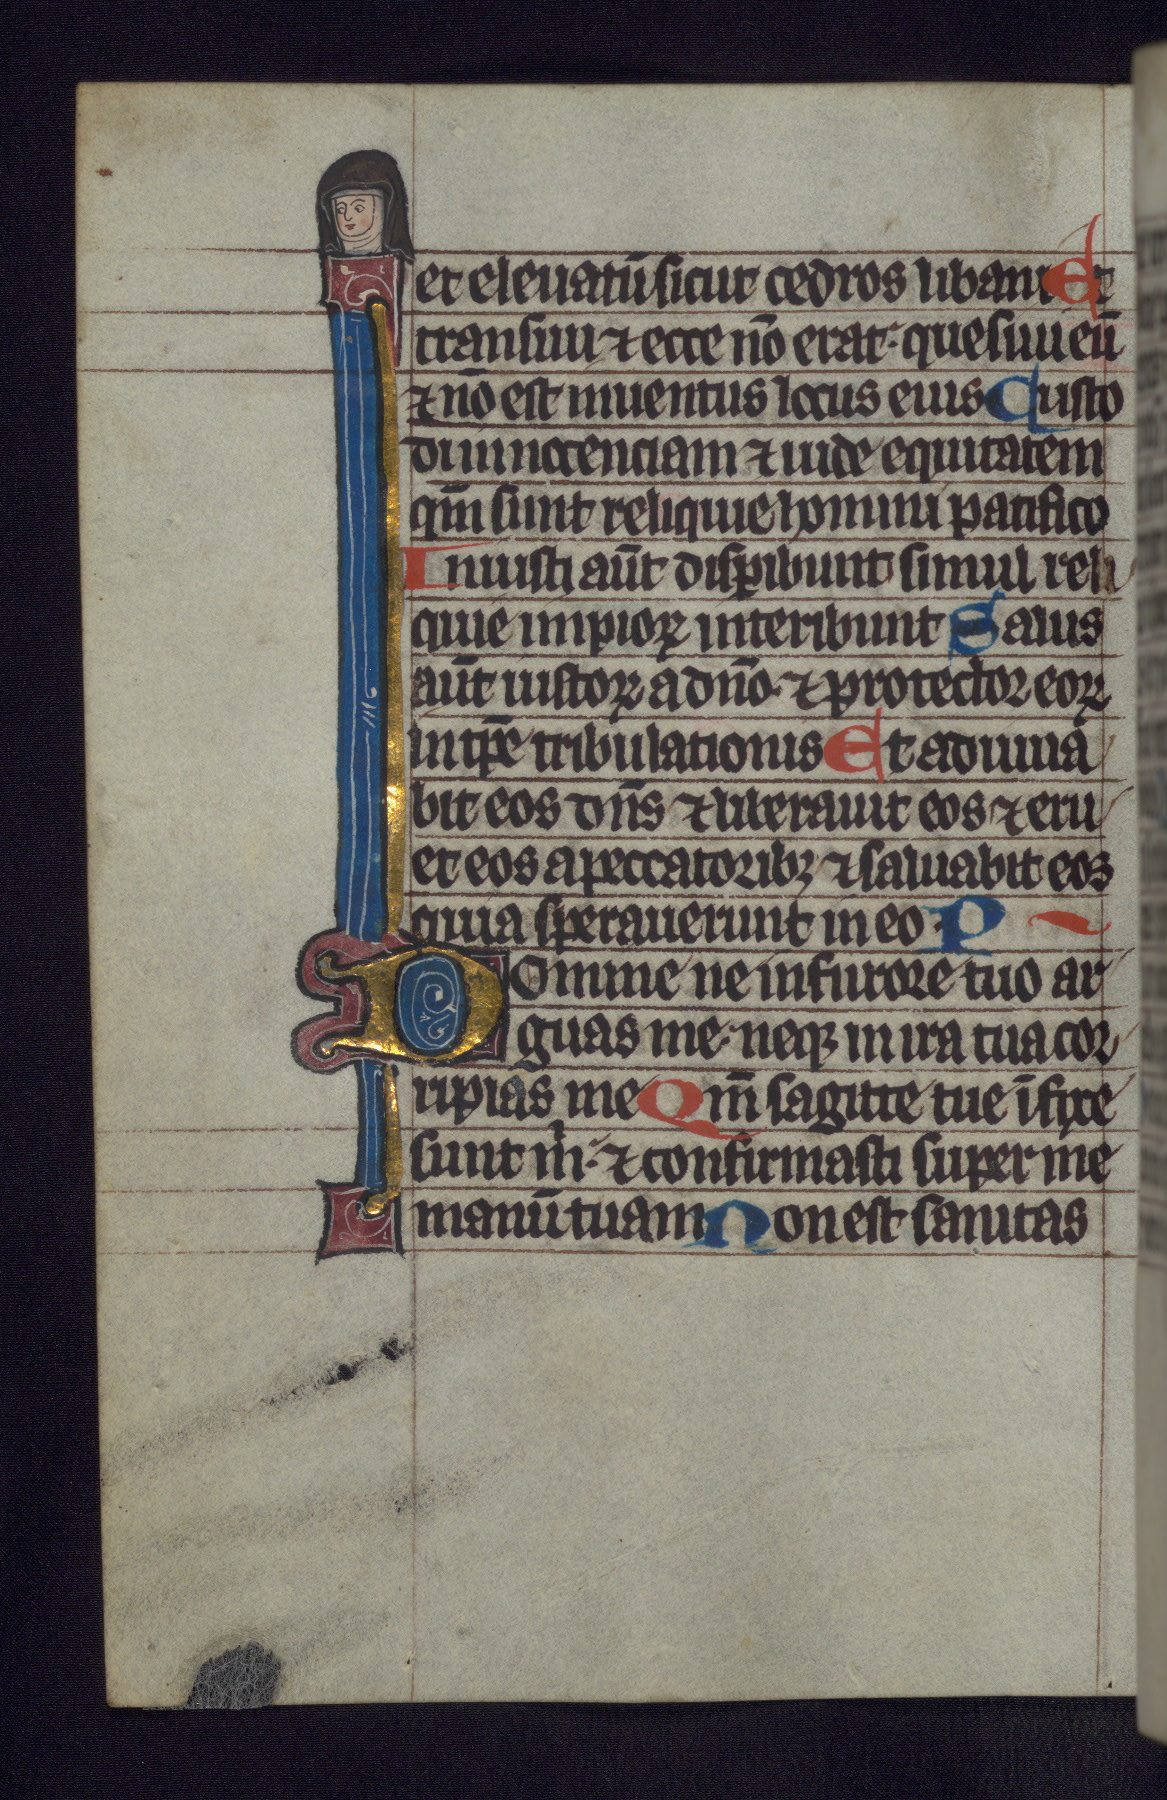 et eleuatū sicut cedros libani Et
transiui ⁊ ecce nō erat· quesiui eū
⁊ nō est inuentus locus eius Custo
di innocenciam ⁊ uide equitatem
qm̄ sunt reliquie homini pacifico
Iniusti aūt disꝑibunt simul reli
quie impioꝝ interibunt Salus
aūt iustoꝝ a dño· ⁊ protector eoꝝ
in tꝑe tribulationis Et adiuua
bit eos dñs ⁊ liberauit eos ⁊ eru
et eos a peccatoribꝫ ⁊ saluabit eos
quia sperauerunt in eo P
Domine ne in furore tuo ar
guas me· neqꝫ in ira tua cor
ripias me Qm̄ sagitte tue īfixe
sunt m̄· ⁊ confirmasti super me
manū tuam Non est sanitas